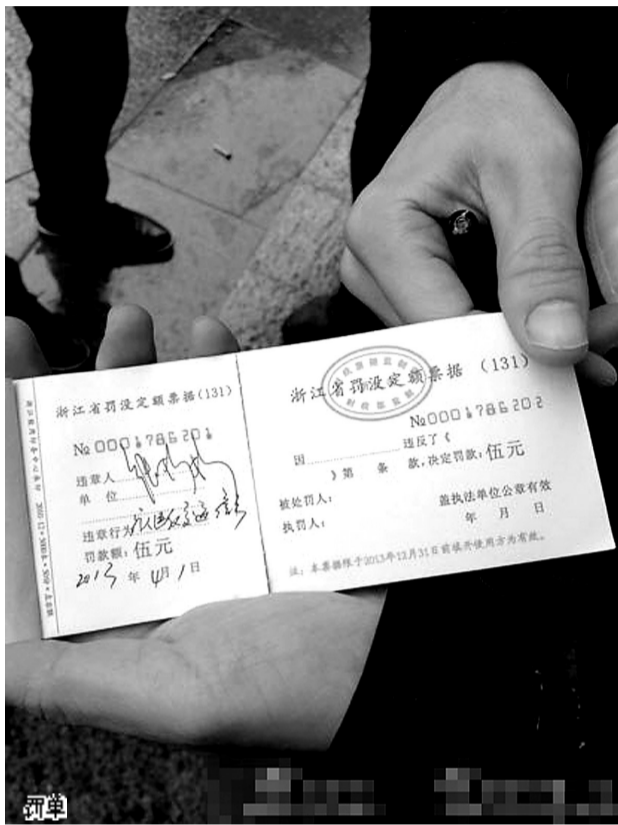 浙江省罚没定额票据(131)
№0001786201
违章人
单 位
违章行为
罚款额:伍元
2013年4月1日
浙江省罚没定额票据 (131)
№0001786202
因 违反了《
》第 条 款,决定罚款:伍元
被处罚人: 盖执法单位公章有效
执罚人: 年 月 日
注:本票据限于2013年12月31日前填开使用方为有效。
罚单